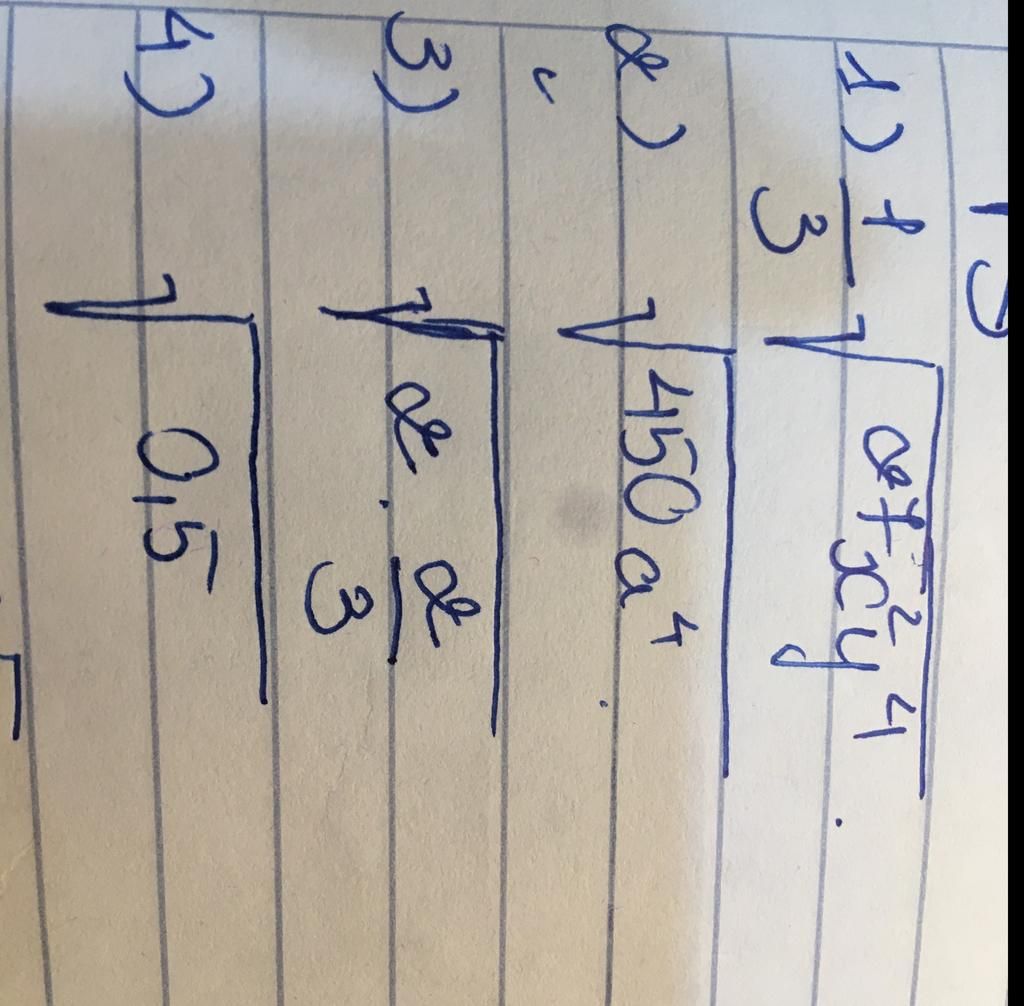 1) 1/3 √27x²y⁴.
2) √450a⁴
3) √2·2/3
4) √0,5